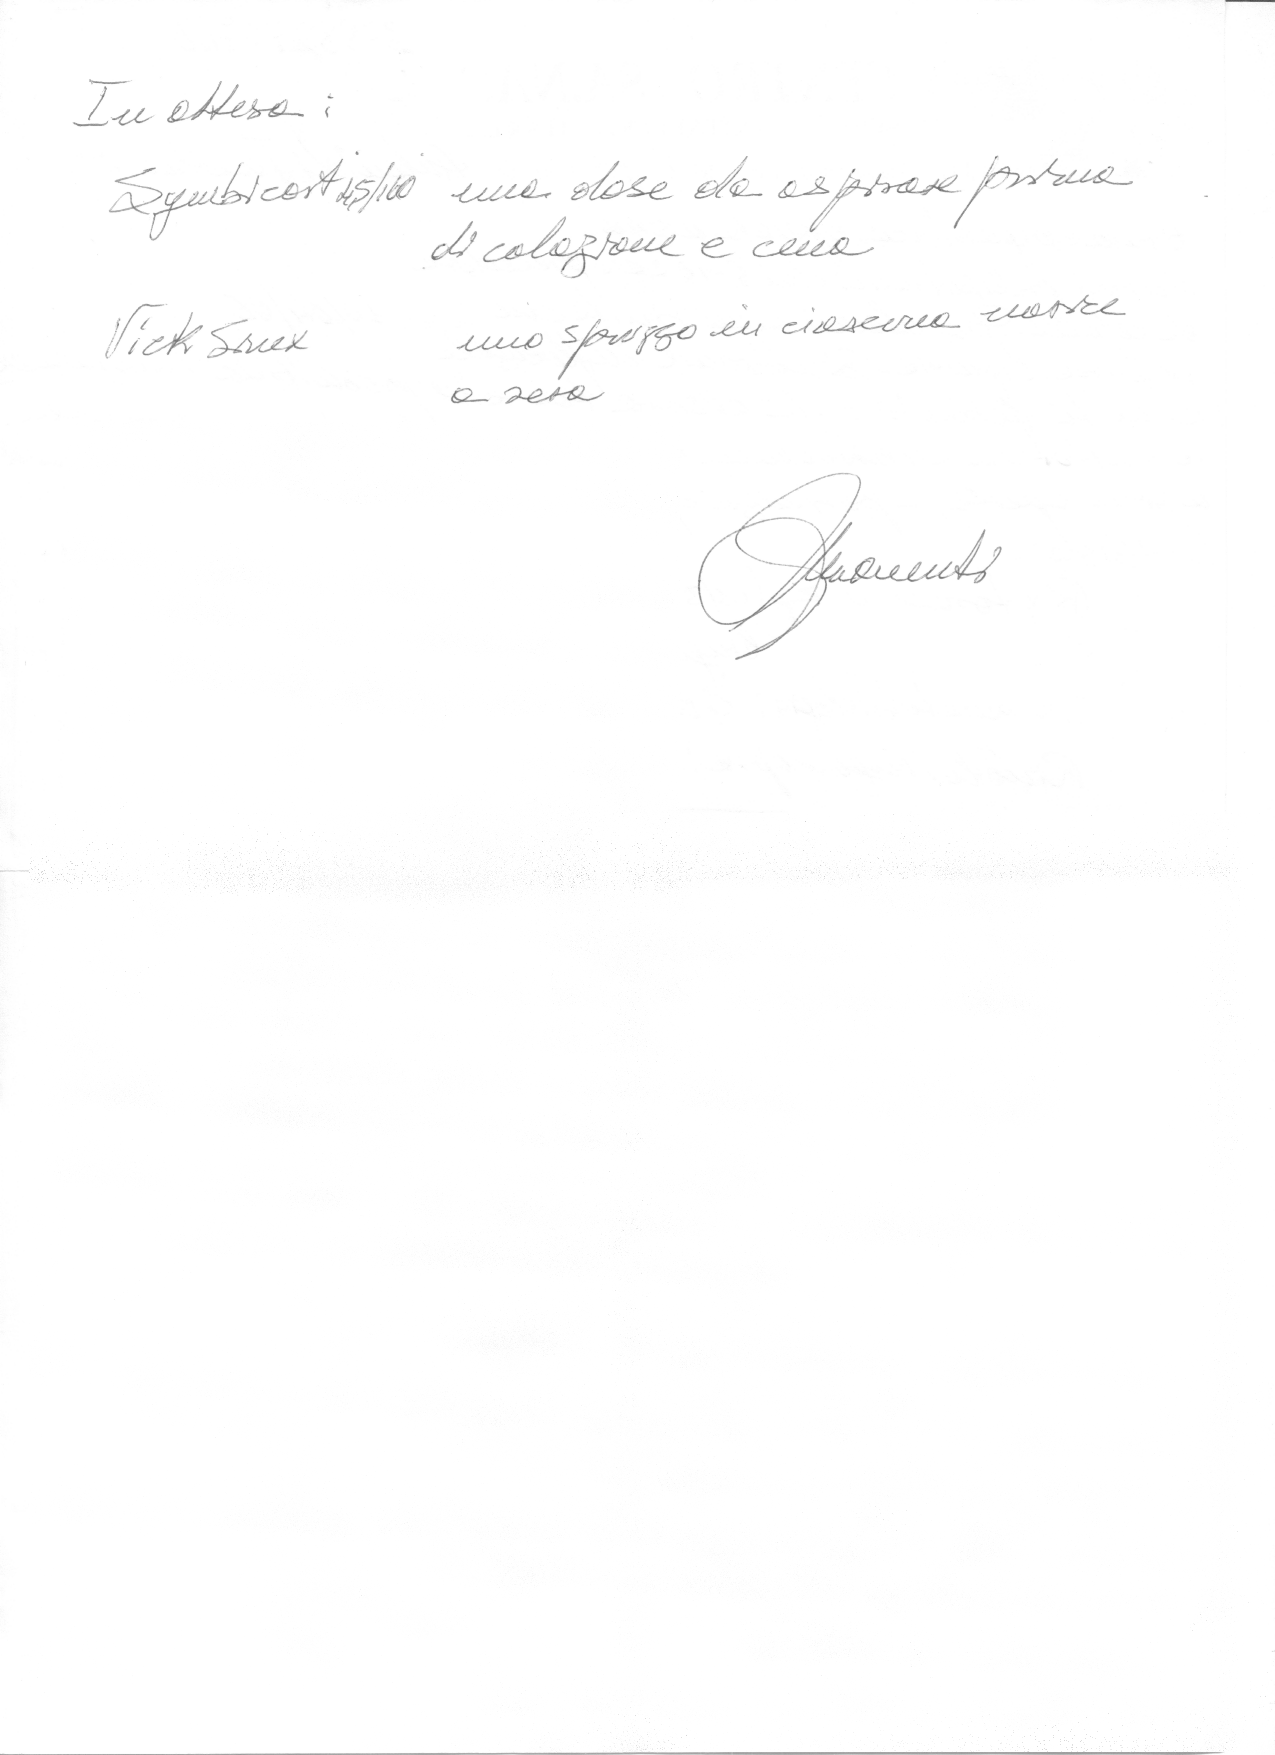 In attesa :
Symbicort 4,5/160 una dose da aspirare prima
di colazione e cena
Vick Sinex uno spruzzo in ciascuna narice
a sera